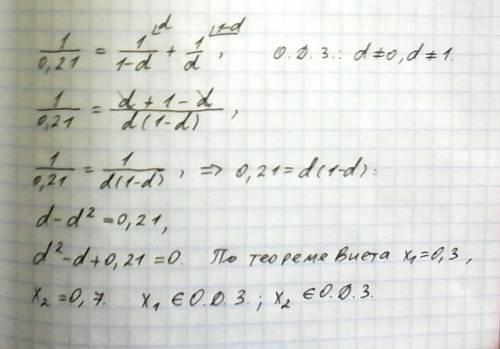 1/0,21 = 1/(1-d) + 1/d, О.Д.З.: d≠0, d≠1.
1/0,21 = (d+1-d)/(d(1-d)),
1/0,21 = 1/(d(1-d)), => 0,21=d(1-d):
d-d²=0,21,
d²-d+0,21=0. По теореме Виета x₁=0,3,
x₂=0,7. x₁ ∈ О.Д.З.; x₂ ∈ О.Д.З.